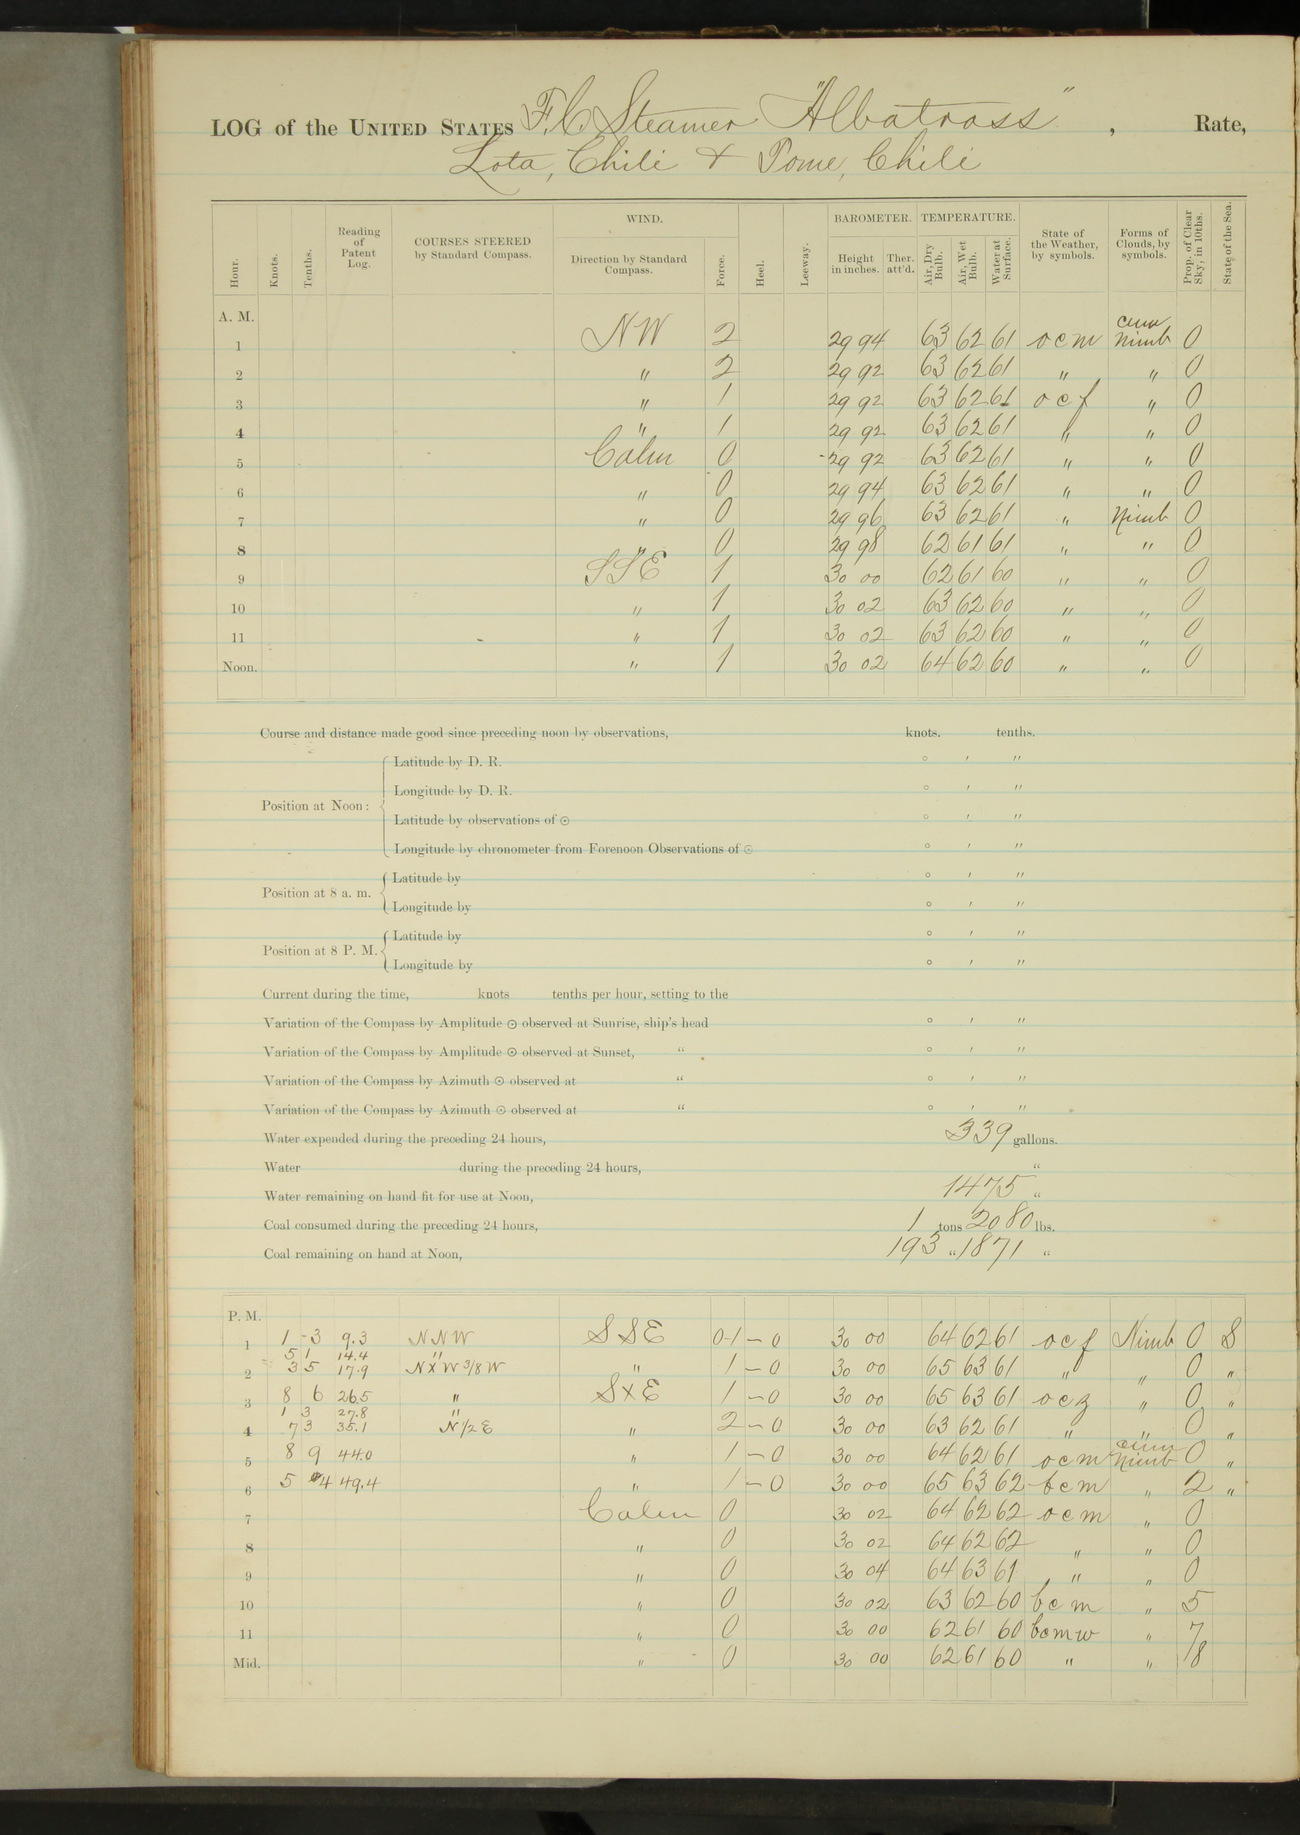 LOG of the UNITED STATES F.C. Steamer "Albatross", Rate,
Lota, Chili & Tome, Chili
Hour. Knots. Tenths. Reading of Patent Log. COURSES STEERED by Standard Compass. WIND. Direction by Standard Compass. Force. Heel. Leeway. BAROMETER. Height in inches. Ther. att'd. TEMPERATURE. Air, Dry Bulb. Air, Wet Bulb. Water at Surface. State of the Weather, by symbols. Forms of Clouds, by symbols. Prop. of Clear Sky, in 10ths. State of the Sea.
A. M.
1 NW 2 29 94 63 62 61 o c m Cum Nimb 0
2 " 2 29 92 63 62 61 " " 0
3 " 1 29 92 63 62 61 o c f " 0
4 " 1 29 92 63 62 61 " " 0
5 Calm 0 29 92 63 62 61 " " 0
6 " 0 29 94 63 62 61 " " 0
7 " 0 29 96 63 62 61 " Nimb 0
8 " 0 29 98 62 61 61 " " 0
9 SSE 1 30 00 62 61 60 " " 0
10 " 1 30 02 63 62 60 " " 0
11 " 1 30 02 63 62 60 " " 0
Noon. " 1 30 02 64 62 60 " " 0
Course and distance made good since preceding noon by observations, knots. tenths.
Position at Noon: Latitude by D. R. ° ' "
Longitude by D. R. ° ' "
Latitude by observations of ☉ ° ' "
Longitude by chronometer from Forenoon Observations of ☉ ° ' "
Position at 8 a. m. Latitude by ° ' "
Longitude by ° ' "
Position at 8 P. M. Latitude by ° ' "
Longitude by ° ' "
Current during the time, knots tenths per hour, setting to the
Variation of the Compass by Amplitude ☉ observed at Sunrise, ship's head ° ' "
Variation of the Compass by Amplitude ☉ observed at Sunset, " ° ' "
Variation of the Compass by Azimuth ☉ observed at " ° ' "
Variation of the Compass by Azimuth ☉ observed at " ° ' "
Water expended during the preceding 24 hours, 339 gallons.
Water during the preceding 24 hours, "
Water remaining on hand fit for use at Noon, 1475 "
Coal consumed during the preceding 24 hours, 1 tons 2080 lbs.
Coal remaining on hand at Noon, 193 " 1871 "
P. M.
1 1 - 3 9.3 NNW SSE 0-1 - 0 30 00 64 62 61 o c f Nimb 0 S
5 1 14.4 "
2 3 5 17.9 NxW 3/8 W " 1 - 0 30 00 65 63 61 " " 0 "
3 8 6 26.5 " SxE 1 - 0 30 00 65 63 61 o c z " 0 "
1 3 27.8 "
4 7 3 35.1 N 1/2 E " 2 - 0 30 00 63 62 61 " " 0 "
5 8 9 44.0 " 1 - 0 30 00 64 62 61 o c m Cum Nimb 0 "
6 5 4 49.4 " 1 - 0 30 00 65 63 62 b c m " 2 "
7 Calm 0 30 02 64 62 62 o c m " 0
8 " 0 30 02 64 62 62 " " 0
9 " 0 30 04 64 63 61 " " 0
10 " 0 30 02 63 62 60 b c m " 5
11 " 0 30 00 62 61 60 b c m w " 7
Mid. " 0 30 00 62 61 60 " " 8